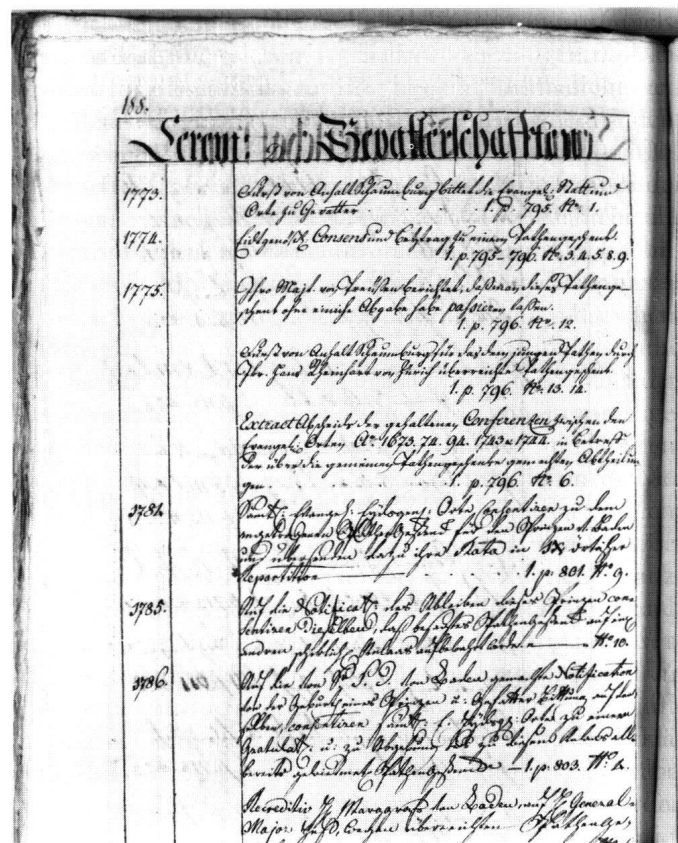 188.
Cerem: Gevatterschafften
1773. Fürst von Anhalt Schaumburg bittet die Evangel: Statt und
Orte zu Gevatter. 1. p. 795. No. 1.
1774. Eidtgenöß. Consens und Beytrag zu einem Pathengeschenk.
1. p. 795-796. No. 3. 4. 5. 8. 9.
1775. Ihro Majt. von Preussen berichtet, daß man dieses Pathenge-
schenk ohne einiche Abgabe habe passieren laßen.
1. p. 796. No. 12.
Fürst von Anhalt Schaumburg für das dem jungen Pathen durch
Hans Rheinhart von Zürich überreichte Pathengeschenk
1. p. 796. No. 13. 14.
Extract Abscheids der gehaltenen Conferenzen zwischen den
Evangel: Orten Ao. 1673. 74. 94. 1743 u 1744. in Betreff
der über die gemeinen Pathengeschenke gemachten Abtheilun
gen. 1. p. 796. No. 6.
1784. Evangel: Eydtgenß: Orte consentiren zu dem
Pathen Geschenk für den Prinzen v. Baden
und übersenden ihre Rata in örtischer
Repartition 1. p. 801. No. 9.
1785. Auf die Notificat: des Ableiben dieses Prinzen con-
sentiren Dieselben, daß Pathengeschenk auf ein
andren Anlaas aufbehalten werde. No. 10.
1786. Auf die von Sr. F. D. von Baden gemachte Notification
von der Geburt eines Prinzen u. Gevatter Bittung
consentiren Orte zu einem
Gratulat: u. zu Abgebung des zu diesem Anlaas all-
bereits gewiedmeten Pathen Geschenks — 1. p. 803. No. 2.
Recreditiv Marggrafs von Baden, auf General-
Major überreichten Pathen Ge-